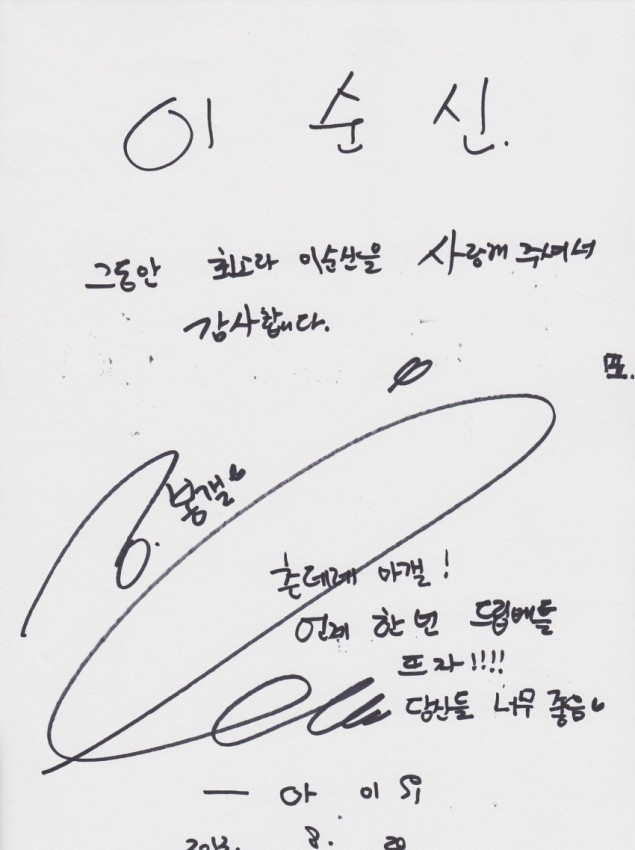 이 순 신.
그동안 최고다 이순신을 사랑해 주셔서
감사합니다.
뽀.
봉갤
츤데레 마갤!
언제 한 번 드립배틀
뜨자!!!!
당신들 너무 좋음
— 아 이 유
2013. 8. 20